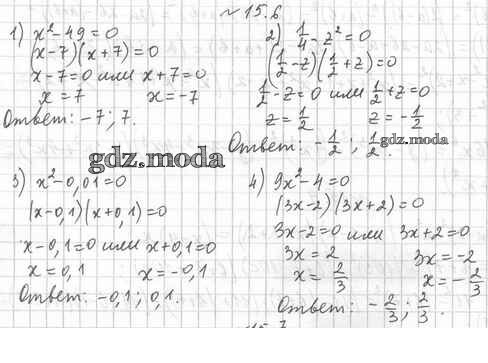 № 15.6
1) x² - 49 = 0
(x-7)(x+7) = 0
x-7=0 или x+7=0
x = 7 x = -7
Ответ: -7; 7.
2) 1/4 - z² = 0
(1/2 - z)(1/2 + z) = 0
1/2 - z = 0 или 1/2 + z = 0
z = 1/2 z = -1/2
Ответ: -1/2; 1/2.
gdz.moda
gdz.moda
3) x² - 0,01 = 0
(x-0,1)(x+0,1) = 0
x-0,1=0 или x+0,1=0
x = 0,1 x = -0,1
Ответ: -0,1; 0,1.
4) 9x² - 4 = 0
(3x-2)(3x+2) = 0
3x-2=0 или 3x+2=0
3x = 2 3x = -2
x = 2/3 x = -2/3
Ответ: -2/3; 2/3.
15.7